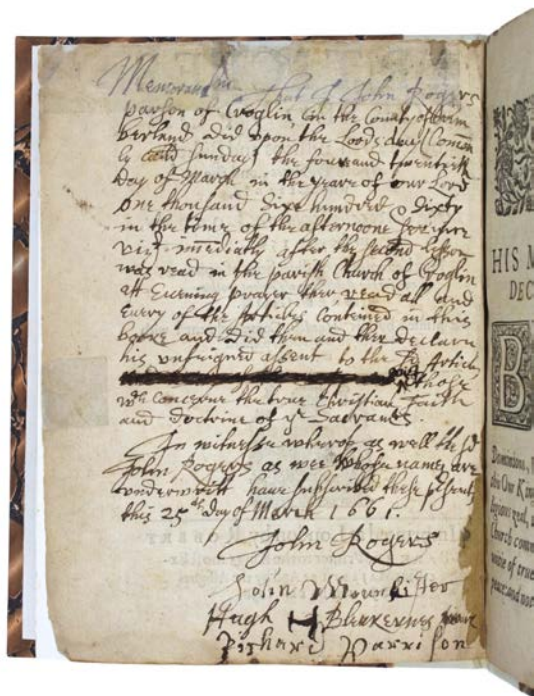 Memorandm That I John Rogers
parson of Croglin in the County of Cum
berland did vpon the Lords day (Common
ly cald Sunday) the four and twentieth
day of March in the yeare of our Lord
one thousand sixe hundred & sixty
in the time of the afternoone service
vizt imediatly after the second lesson
was read in the parish Church of Croglin
att Euening prayer ther read all and
euery of the Articles Conteined in this
booke and did then and ther declare
his vnfeigned assent to the sd Articles
those
wch Concerne the true Christian Faith
and doctrine of ye Sacramts.
In witnesse wherof as well the sd
John Rogers as wee whose names are
vnderwritt haue subscribed these psents
this 25th day of March 1661.
John Rogers
John
Hugh H
Richard Harrison
HIS M
DEC
B
Dominions,
this Our K
ligious zeal,
Church comm
unity of true
peace; and not